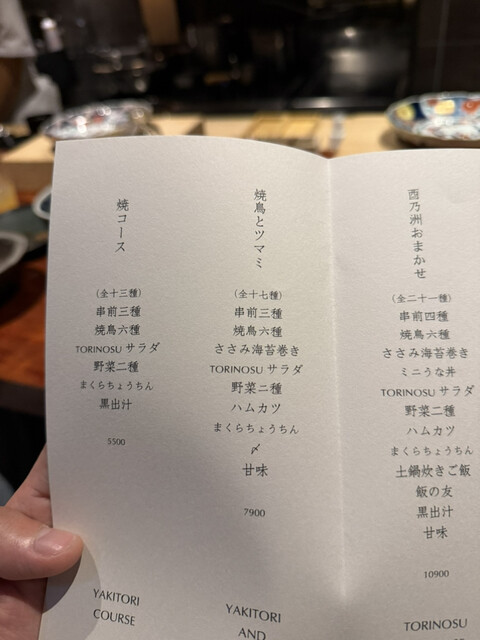 焼コース
（全十三種）
串前三種
焼鳥六種
TORINOSU サラダ
野菜二種
まくらちょうちん
黒出汁
5500
YAKITORI
COURSE
焼鳥とツマミ
（全十七種）
串前三種
焼鳥六種
ささみ海苔巻き
TORINOSU サラダ
野菜二種
ハムカツ
まくらちょうちん
〆
甘味
7900
YAKITORI
AND
酉乃洲おまかせ
（全二十一種）
串前四種
焼鳥六種
ささみ海苔巻き
ミニうな丼
TORINOSU サラダ
野菜二種
ハムカツ
まくらちょうちん
土鍋炊きご飯
飯の友
黒出汁
甘味
10900
TORINOSU